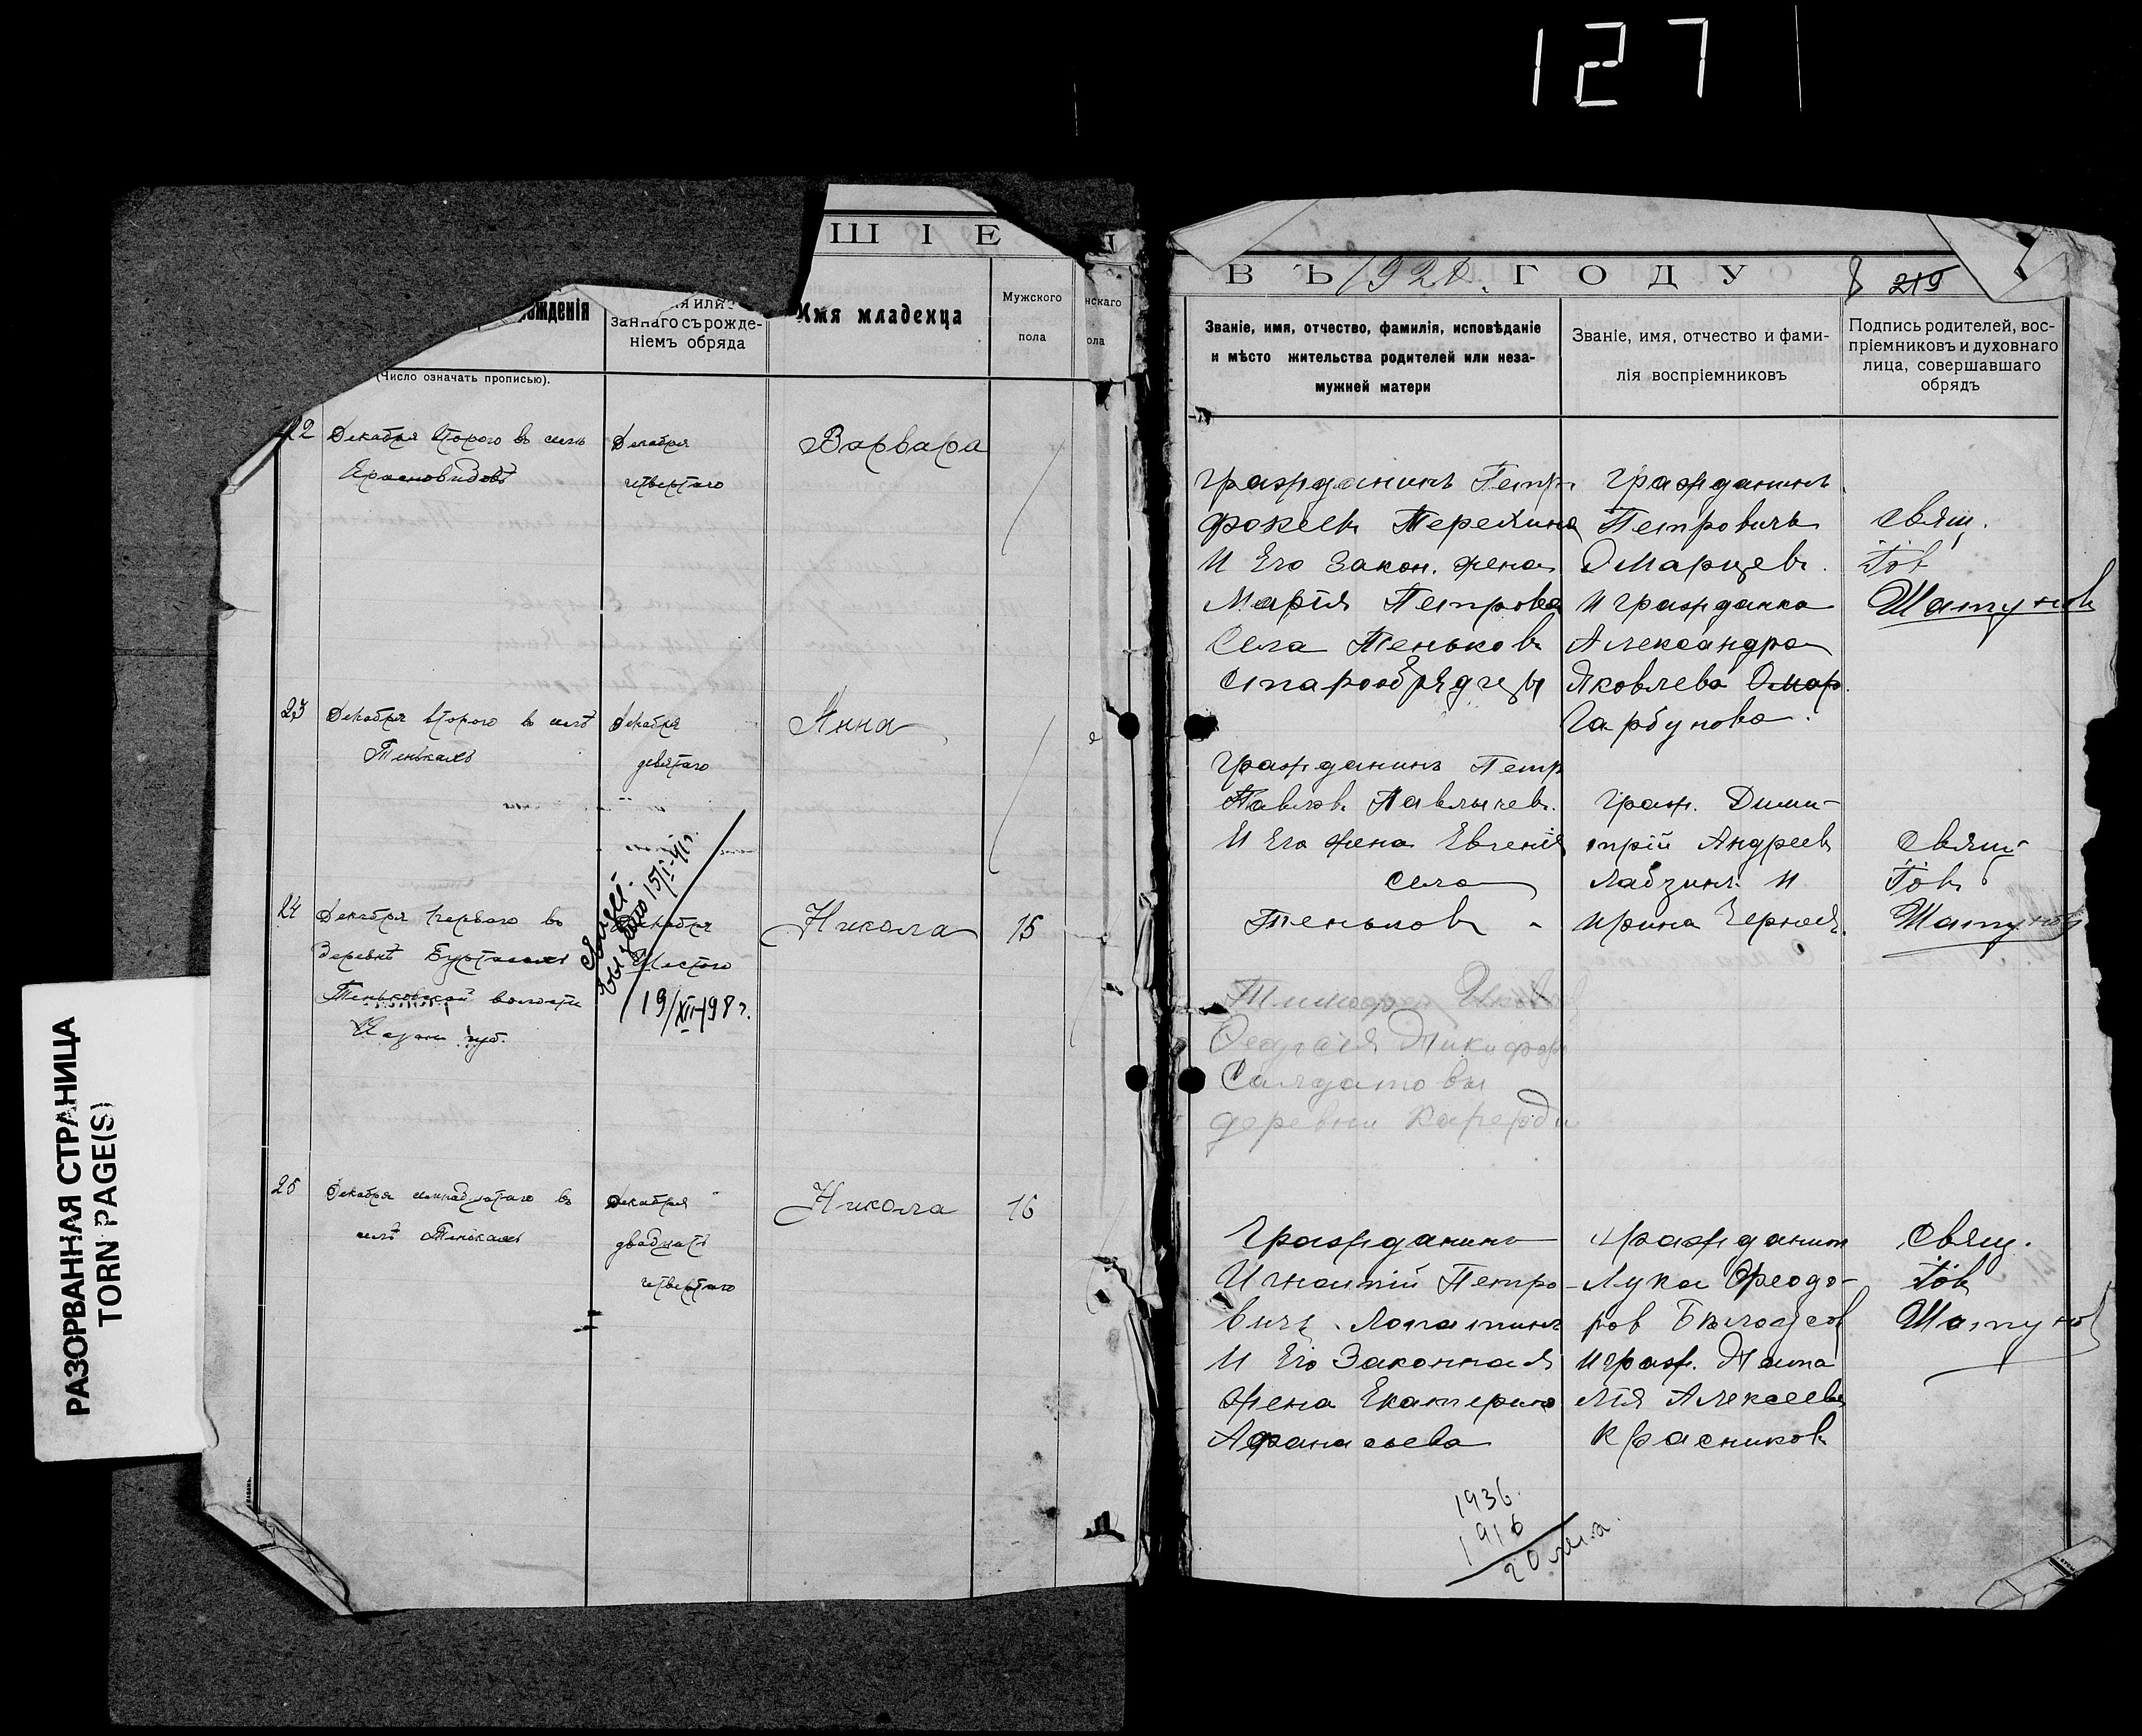 127
РАЗОРВАННАЯ СТРАНИЦА
TORN PAGE(S)
ШІЕ
жденія
я или
заннаго съ рожде-
ніемъ обряда
Имя младенца
Мужского
пола
нскаго
ола
(Число означать прописью).
22 Декабря второго въ селѣ
Красновидовѣ
Декабря
четвертаго
Варвара
23 Декабря второго въ селѣ
Теньках
Декабря
девятаго
Анна
24 Декабря перваго въ
деревнѣ
Теньковской волости
Казан. губ.
Декабря
Шестого
15/I-41г.
19/XII-98 г.
Никола
15
25 Декабря въ
селѣ Теньках
Декабря
двадцать
четвертаго
Никола
16
ВЪ 192 ГОДУ
219
Званіе, имя, отчество, фамилія, исповѣданіе
и мѣсто жительства родителей или неза-
мужней матери
Званіе, имя, отчество и фами-
лія воспріемниковъ
Подпись родителей, вос-
пріемниковъ и духовнаго
лица, совершавшаго
обрядъ
Гражданинъ Петр
Фокеевъ
И Его Закон. жена
Марія Петрова
Села Теньковъ
Старообрядцы
Гражданинъ
Петровичъ
и гражданка
Александра
Яковлева
Гарбунова.
Свящ.
Іов
Шатунов
Гражданинъ Петр
Павловъ Павлычев.
И Его жена Евгенія
Села
Теньковъ
Граж. Дими-
трій Андреев
Лабзинъ И
Ирина
Свящ.
Іовъ
Шатунов
Тимофей
Салдатовы
деревни
Гражданинъ
Игнатій Петро-
вичъ Лопатинъ
И Его Законная
Жена Екатерина
Афанасьева
Гражданин
Лука Феодо-
ров Бѣлоусов
и граж. Ната
лія Алексеева
Красников
Свящ.
Іов
Шатунов
1936.
1916
20 лет.